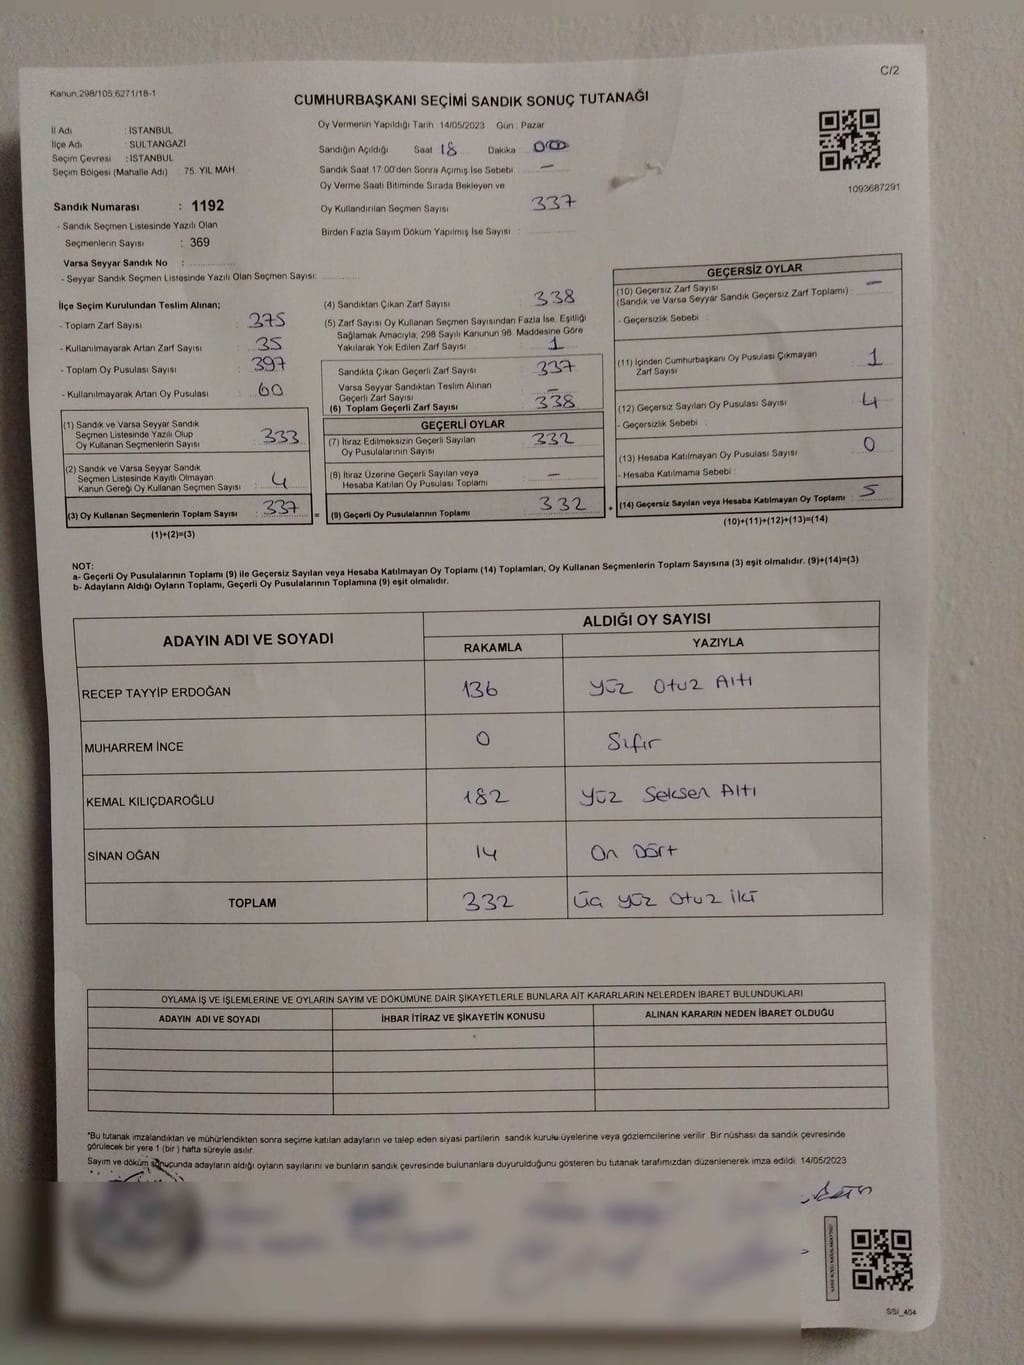 C/2
Kanun:298/105,6271/18-1
CUMHURBAŞKANI SEÇİMİ SANDIK SONUÇ TUTANAĞI
İl Adı : İSTANBUL
İlçe Adı : SULTANGAZİ
Seçim Çevresi : İSTANBUL
Seçim Bölgesi (Mahalle Adı) : 75. YIL MAH.
Sandık Numarası : 1192
- Sandık Seçmen Listesinde Yazılı Olan
Seçmenlerin Sayısı : 369
Varsa Seyyar Sandık No :
- Seyyar Sandık Seçmen Listesinde Yazılı Olan Seçmen Sayısı:
Oy Vermenin Yapıldığı Tarih 14/05/2023 Gün : Pazar
Sandığın Açıldığı Saat 18 Dakika
Sandık Saat 17.00'den Sonra Açımış İse Sebebi : —
Oy Verme Saati Bitiminde Sırada Bekleyen ve
Oy Kullandırılan Seçmen Sayısı 337
Birden Fazla Sayım Döküm Yapılmış İse Sayısı :
1093687291
İlçe Seçim Kurulundan Teslim Alınan;
- Toplam Zarf Sayısı : 375
- Kullanılmayarak Artan Zarf Sayısı : 35
- Toplam Oy Pusulası Sayısı : 397
- Kullanılmayarak Artan Oy Pusulası : 60
(1) Sandık ve Varsa Seyyar Sandık
Seçmen Listesinde Yazılı Olup
Oy Kullanan Seçmenlerin Sayısı : 333
(2) Sandık ve Varsa Seyyar Sandık
Seçmen Listesinde Kayıtlı Olmayan
Kanun Gereği Oy Kullanan Seçmen Sayısı : 4
(3) Oy Kullanan Seçmenlerin Toplam Sayısı : 337
(1)+(2)=(3)
(4) Sandıktan Çıkan Zarf Sayısı : 338
(5) Zarf Sayısı Oy Kullanan Seçmen Sayısından Fazla İse, Eşitliği
Sağlamak Amacıyla; 298 Sayılı Kanunun 98. Maddesine Göre
Yakılarak Yok Edilen Zarf Sayısı : 1
Sandıkta Çıkan Geçerli Zarf Sayısı : 337
Varsa Seyyar Sandıktan Teslim Alınan
Geçerli Zarf Sayısı : —
(6) Toplam Geçerli Zarf Sayısı : 338
GEÇERLİ OYLAR
(7) İtiraz Edilmeksizin Geçerli Sayılan
Oy Pusulalarının Sayısı : 332
(8) İtiraz Üzerine Geçerli Sayılan veya
Hesaba Katılan Oy Pusulası Toplamı : —
= (9) Geçerli Oy Pusulalarının Toplamı : 332
GEÇERSİZ OYLAR
(10) Geçersiz Zarf Sayısı
(Sandık ve Varsa Seyyar Sandık Geçersiz Zarf Toplamı) : —
- Geçersizlik Sebebi :
(11) İçinden Cumhurbaşkanı Oy Pusulası Çıkmayan
Zarf Sayısı : 1
(12) Geçersiz Sayılan Oy Pusulası Sayısı : 4
- Geçersizlik Sebebi :
(13) Hesaba Katılmayan Oy Pusulası Sayısı : 0
- Hesaba Katılmama Sebebi :
+ (14) Geçersiz Sayılan veya Hesaba Katılmayan Oy Toplamı : 5
(10)+(11)+(12)+(13)=(14)
NOT:
a- Geçerli Oy Pusulalarının Toplamı (9) ile Geçersiz Sayılan veya Hesaba Katılmayan Oy Toplamı (14) Toplamları, Oy Kullanan Seçmenlerin Toplam Sayısına (3) eşit olmalıdır. (9)+(14)=(3)
b- Adayların Aldığı Oyların Toplamı, Geçerli Oy Pusulalarının Toplamına (9) eşit olmalıdır.
ADAYIN ADI VE SOYADI ALDIĞI OY SAYISI
RAKAMLA YAZIYLA
RECEP TAYYİP ERDOĞAN 136 Yüz Otuz Altı
MUHARREM İNCE 0 Sıfır
KEMAL KILIÇDAROĞLU 182 Yüz Seksen Altı
SİNAN OĞAN 14 On Dört
TOPLAM 332 Üç Yüz Otuz İki
OYLAMA İŞ VE İŞLEMLERİNE VE OYLARIN SAYIM VE DÖKÜMÜNE DAİR ŞİKAYETLERLE BUNLARA AİT KARARLARIN NELERDEN İBARET BULUNDUKLARI
ADAYIN ADI VE SOYADI İHBAR İTİRAZ VE ŞİKAYETİN KONUSU ALINAN KARARIN NEDEN İBARET OLDUĞU
"Bu tutanak imzalandıktan ve mühürlendikten sonra seçime katılan adayların ve talep eden siyasi partilerin sandık kurulu üyelerine veya gözlemcilerine verilir. Bir nüshası da sandık çevresinde
görülecek bir yere 1 (bir ) hafta süreyle asılır.
Sayım ve döküm sonuçunda adayların aldığı oyların sayılarını ve bunların sandık çevresinde bulunanlara duyurulduğunu gösteren bu tutanak tarafımızdan düzenlenerek imza edildi. 14/05/2023
SSI_404